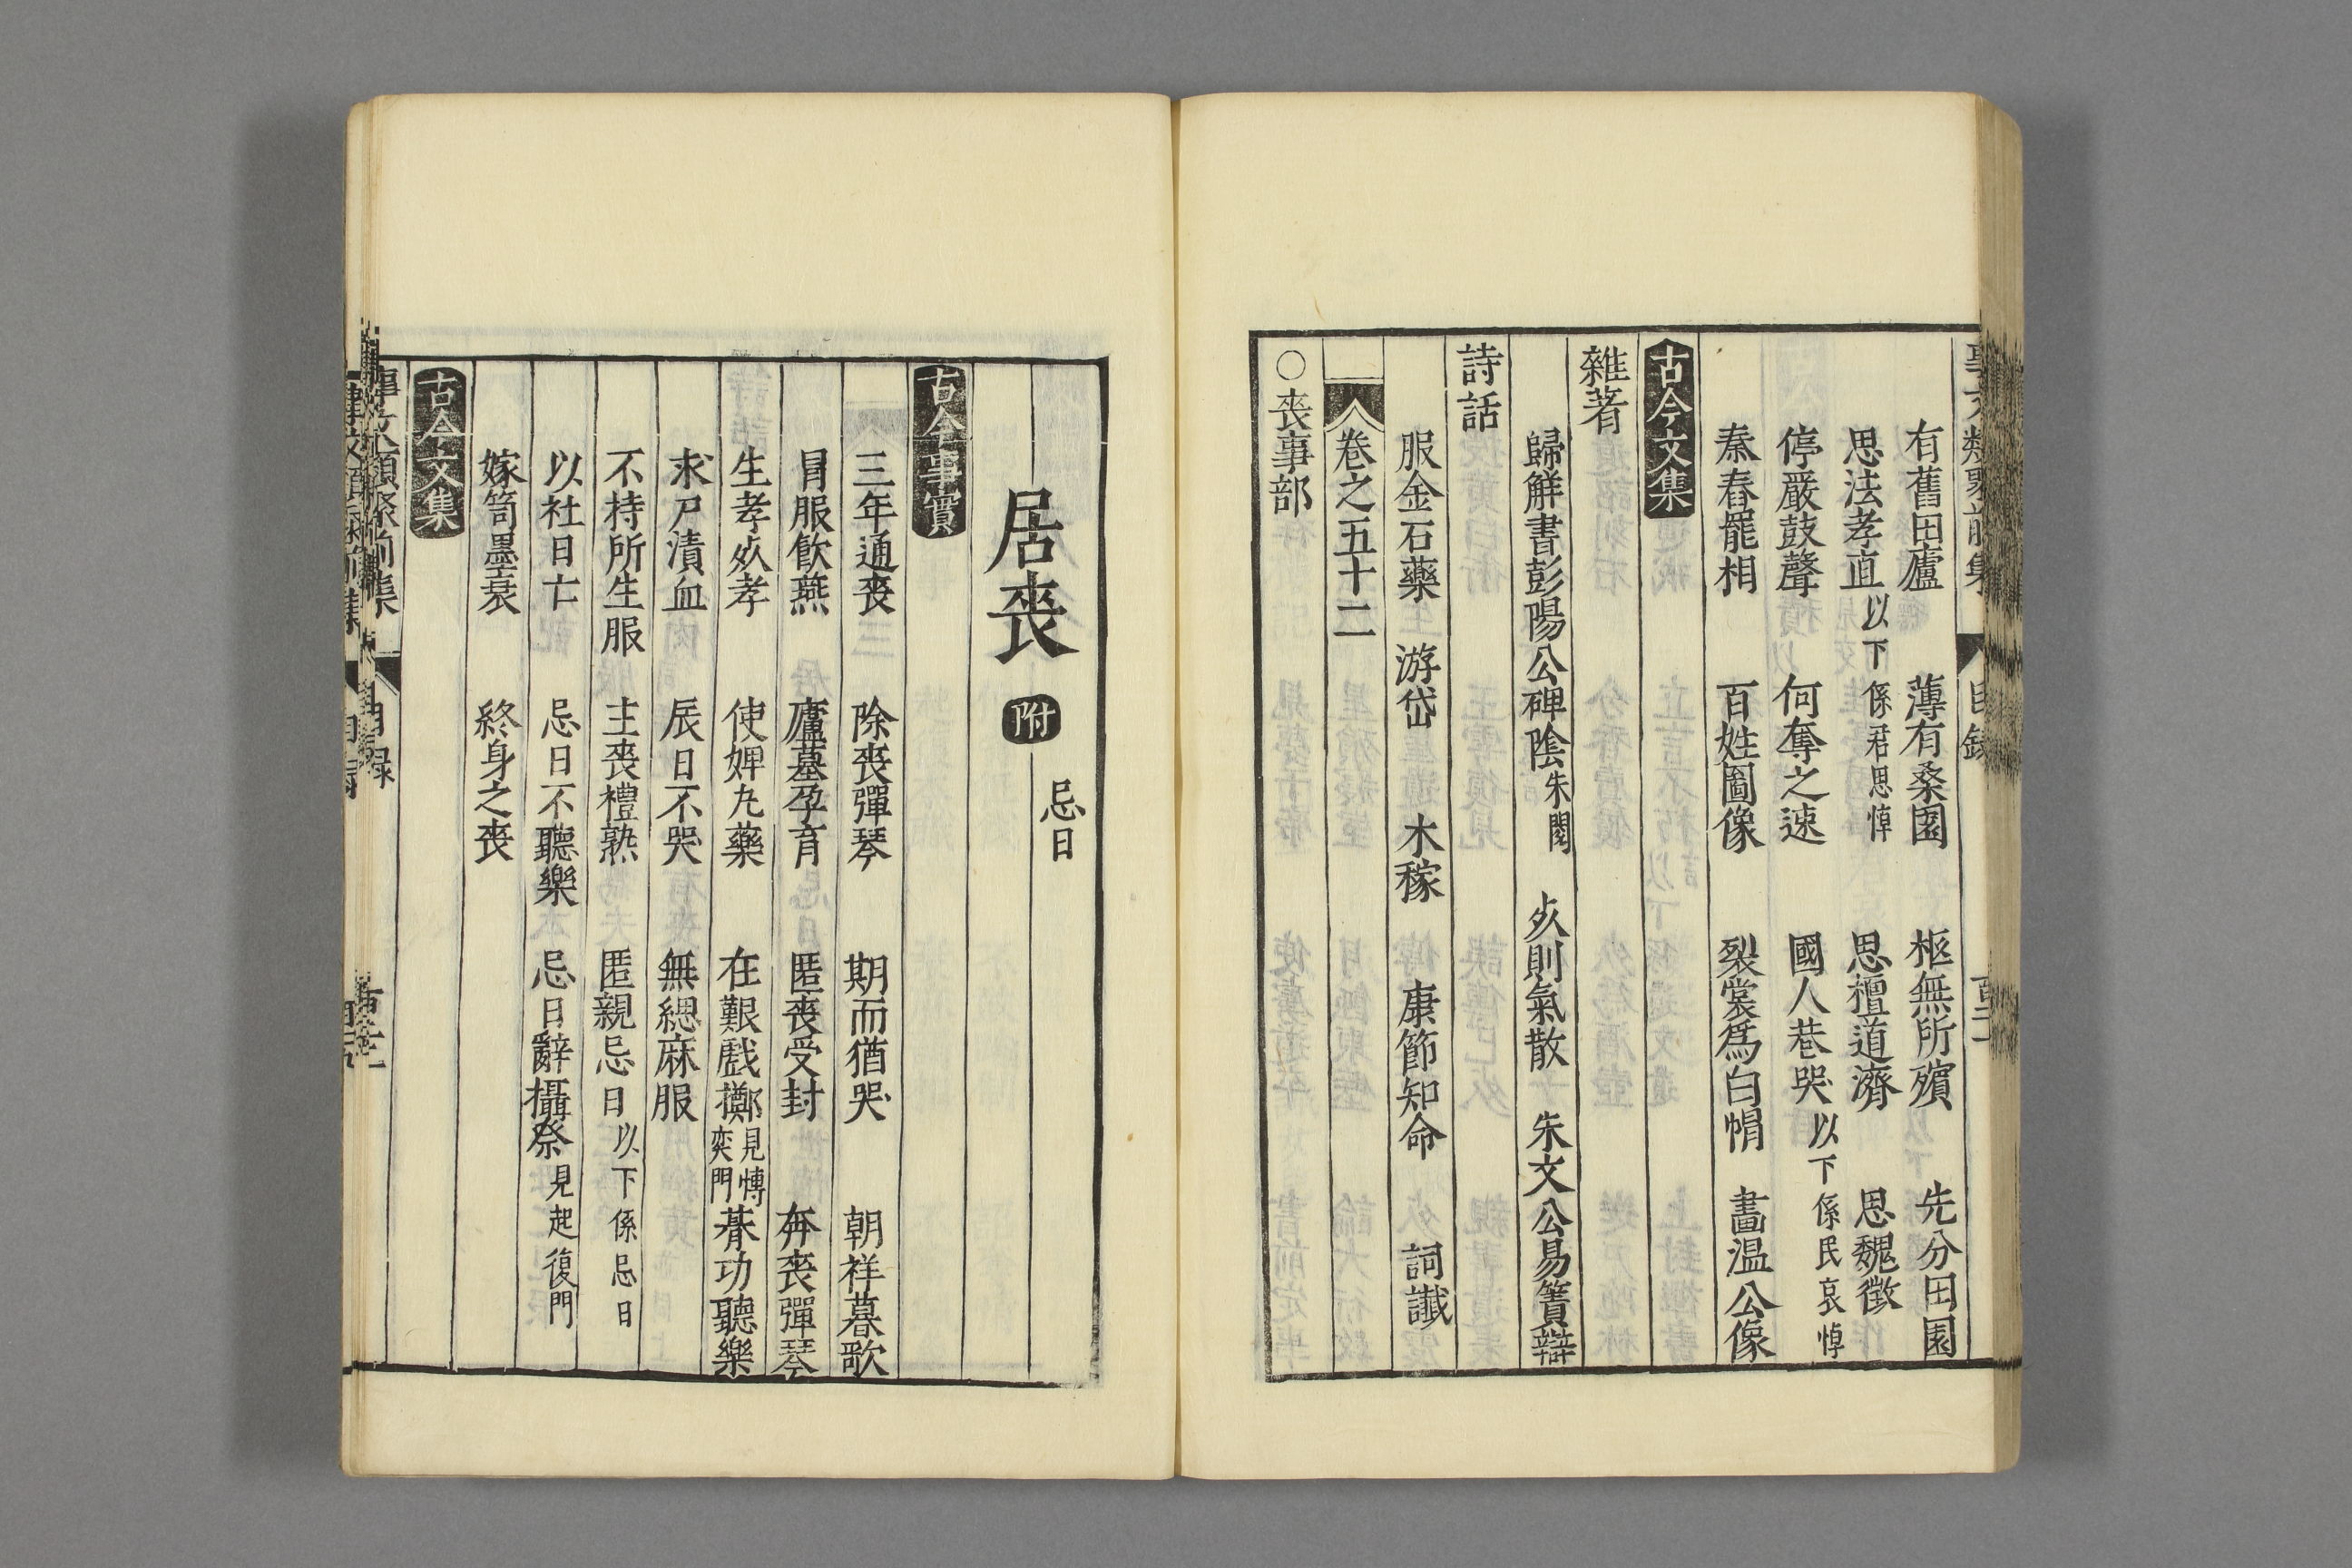 有舊田廬 薄有桑園 柩無所殯 先分田園
思法孝直以下係君思悼 思檀道濟 思魏徵
停嚴鼓聲 何奪之速 國人巷哭以下係民哀悼
秦舂罷相 百姓圖像 裂裳爲白帽 畫温公像
古今文集
雜著
歸觧書彭陽公碑陰朱閱 歿則氣散 朱文公易簀辯
詩話
服金石藥 游岱 木稼 康節知命 詞讖
卷之五十二
○喪事部
居喪 附 忌日
古今事實
三年通喪 除喪彈琴 期而猶哭 朝祥暮歌
冐服飲燕 廬墓孕育 匿喪受封 奔喪彈琴
生孝死孝 使婢丸藥 在艱戲擲見博奕門 朞功聽樂
求尸漬血 辰日不哭 無緦麻服
不持所生服 主喪禮熟 匿親忌日以下係忌日
以社日亡 忌日不聽樂 忌日辭攝祭見起復門
嫁笥墨衰 終身之喪
古今文集
事文類聚前集 目録